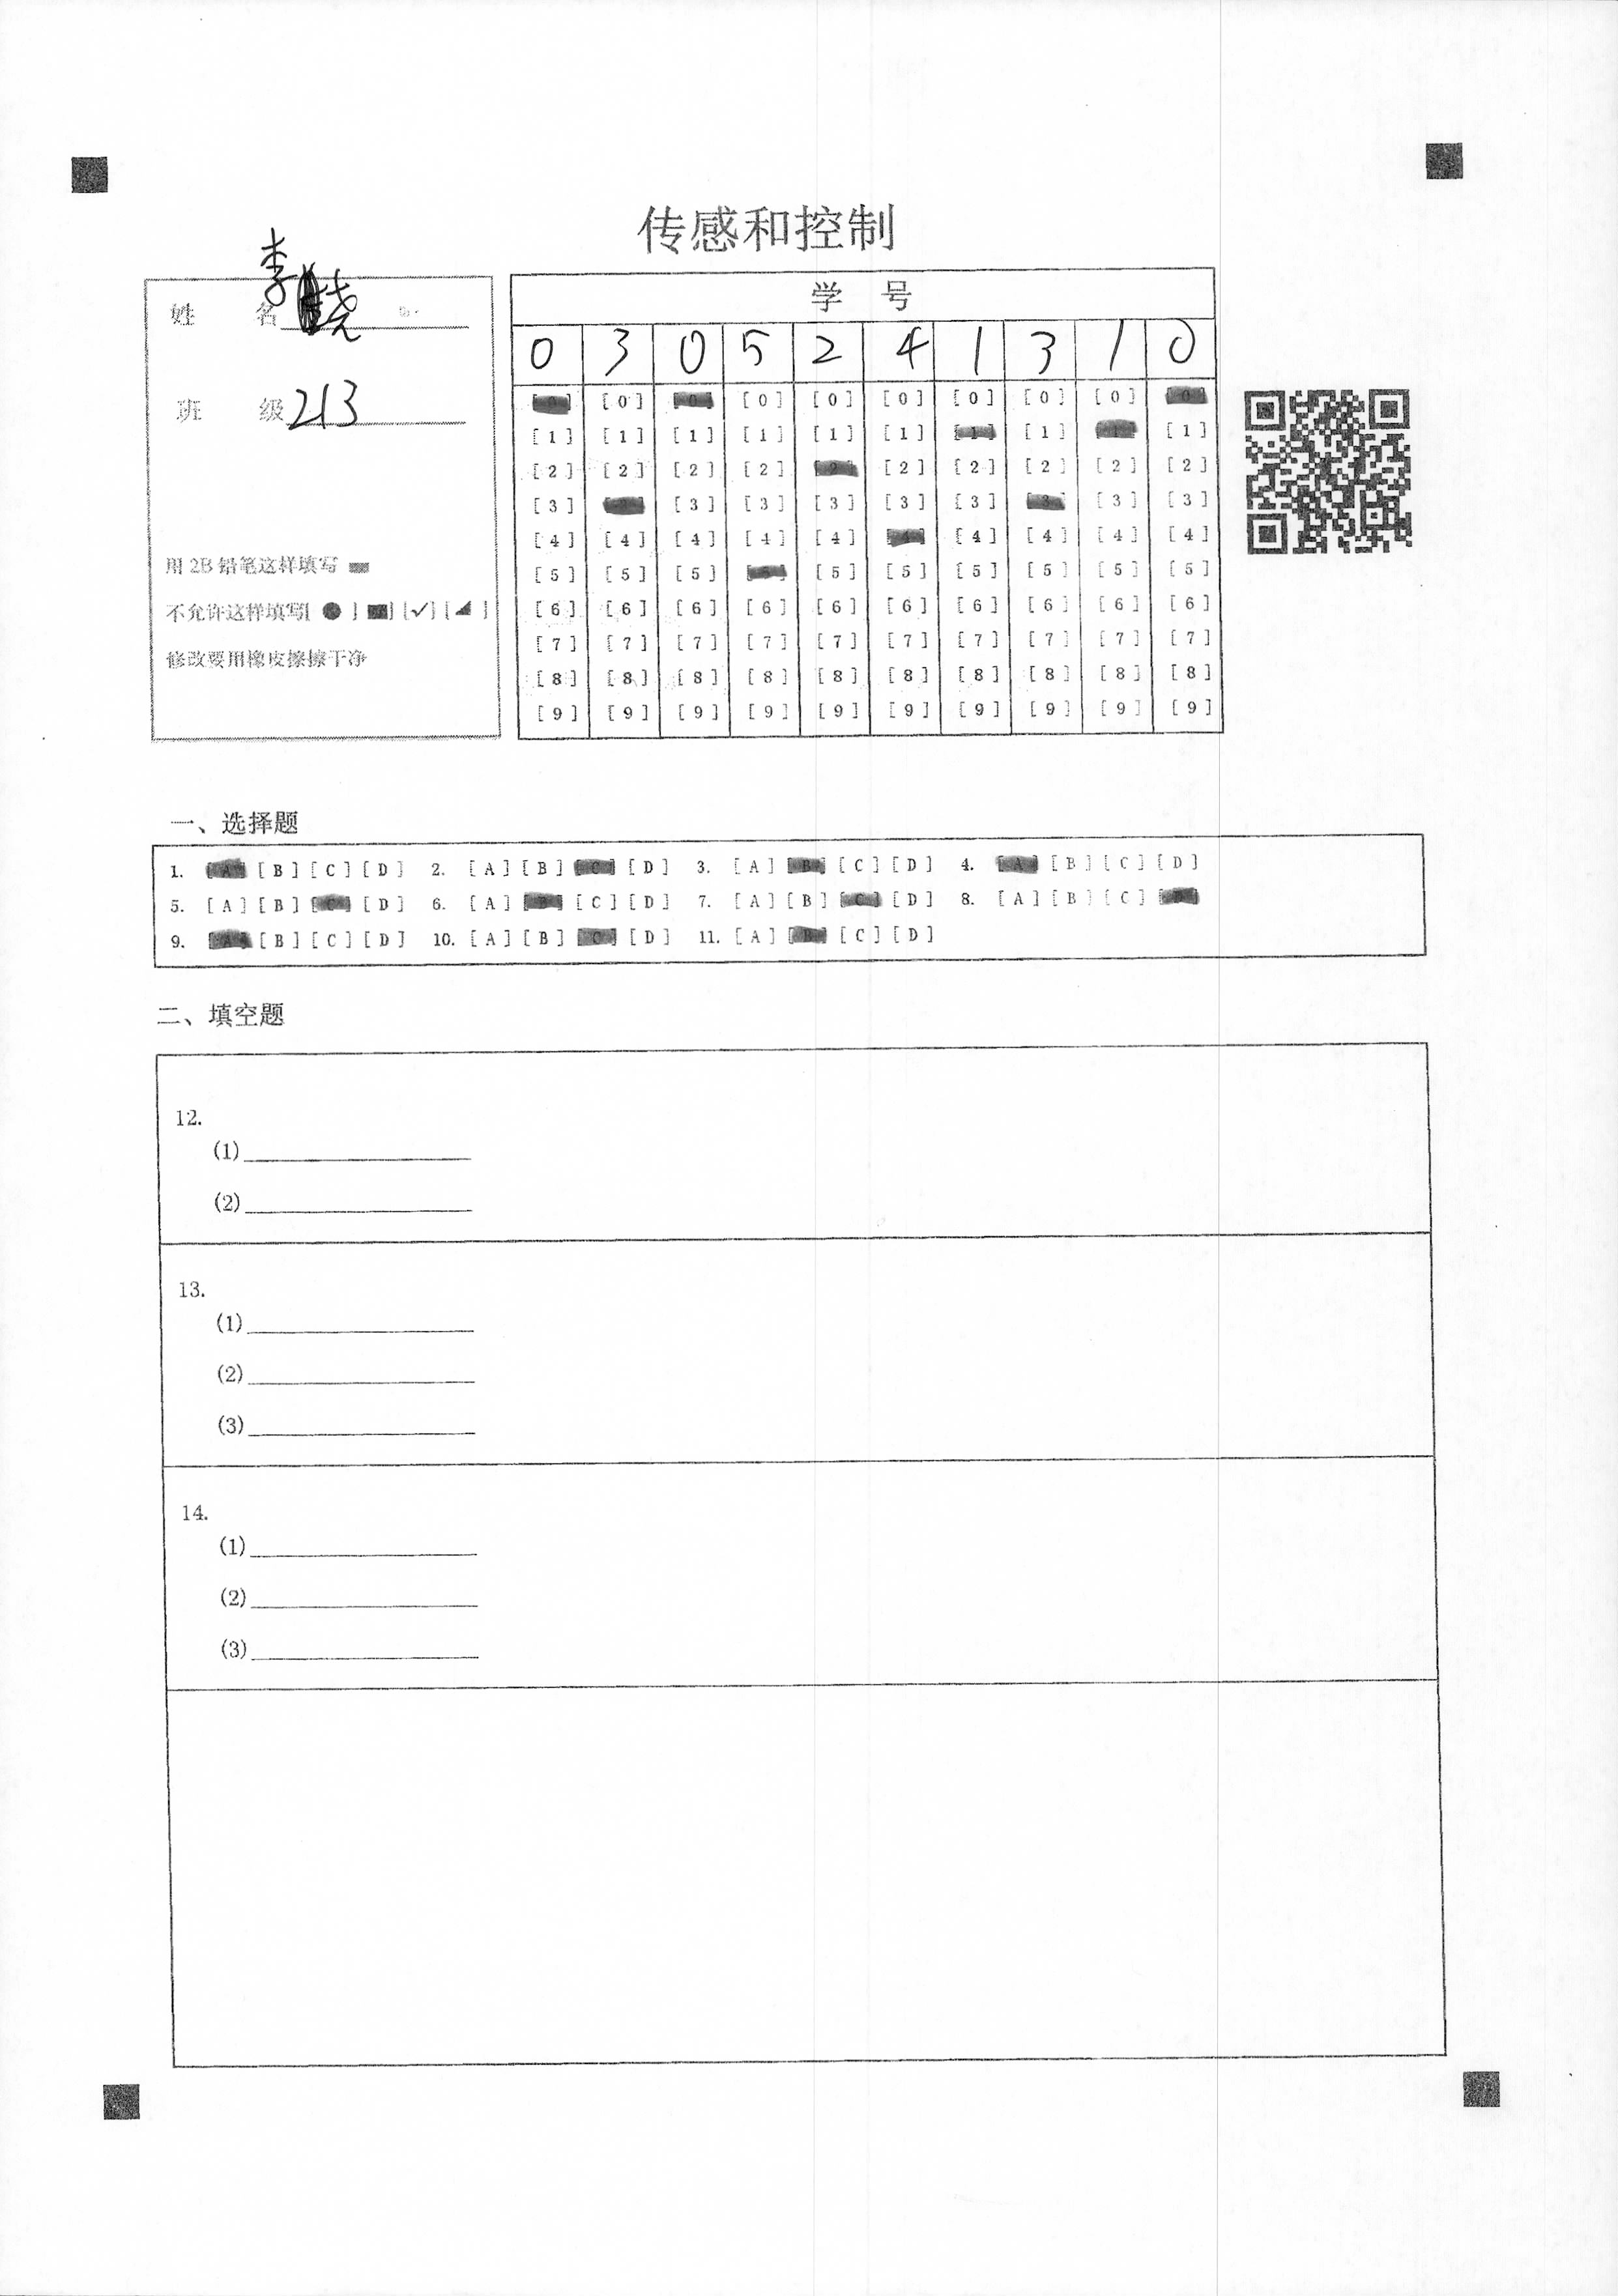 传感和控制
姓 名 李晓
班 级 213
用 2B 铅笔这样填写
不允许这样填写[ ● ] [■] [✓] [◢ ]
修改要用橡皮擦擦干净
学 号
0 3 0 5 2 4 1 3 1 0
[0] [0] [0] [0] [0] [0] [0] [0] [0] [0]
[1] [1] [1] [1] [1] [1] [1] [1] [1] [1]
[2] [2] [2] [2] [2] [2] [2] [2] [2] [2]
[3] [3] [3] [3] [3] [3] [3] [3] [3] [3]
[4] [4] [4] [4] [4] [4] [4] [4] [4] [4]
[5] [5] [5] [5] [5] [5] [5] [5] [5] [5]
[6] [6] [6] [6] [6] [6] [6] [6] [6] [6]
[7] [7] [7] [7] [7] [7] [7] [7] [7] [7]
[8] [8] [8] [8] [8] [8] [8] [8] [8] [8]
[9] [9] [9] [9] [9] [9] [9] [9] [9] [9]
一、选择题
1. [A] [B] [C] [D] 2. [A] [B] [C] [D] 3. [A] [B] [C] [D] 4. [A] [B] [C] [D]
5. [A] [B] [C] [D] 6. [A] [B] [C] [D] 7. [A] [B] [C] [D] 8. [A] [B] [C] [D]
9. [A] [B] [C] [D] 10. [A] [B] [C] [D] 11. [A] [B] [C] [D]
二、填空题
12.
(1)
(2)
13.
(1)
(2)
(3)
14.
(1)
(2)
(3)